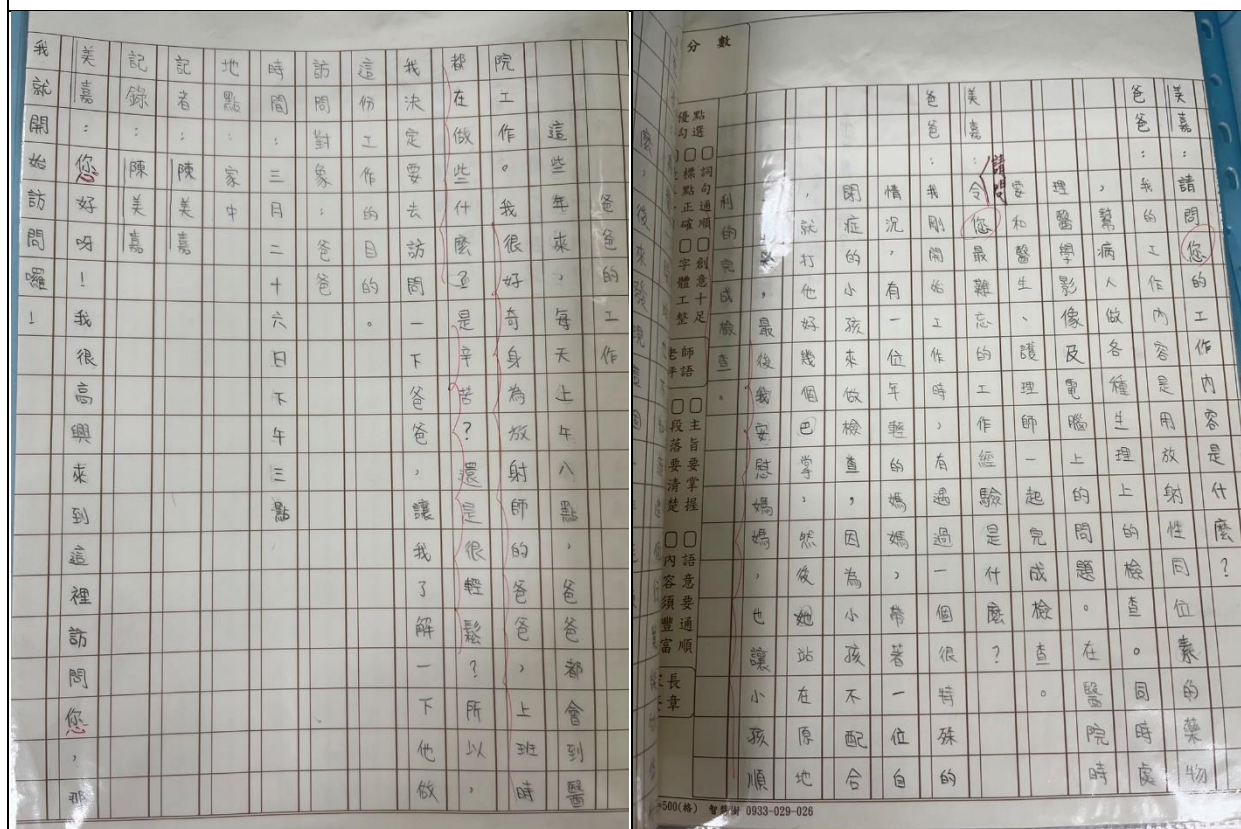 爸爸的工作
這些年來，每天上午八點，爸爸都會到醫
院工作。我很好奇身為放射師的爸爸，上班時
都在做些什麼？是辛苦？還是很輕鬆？所以，
我決定要去訪問一下爸爸，讓我了解一下他做
這份工作的目的。
訪問對象：爸爸
時間：三月二十六日下午三點
地點：家中
記者：陳美嘉
記錄：陳美嘉
美嘉：您好呀！我很高興來到這裡訪問您，那
我就開始訪問囉！
美嘉：請問您的工作內容是什麼？
爸爸：我的工作內容是用放射性同位素的藥物
，幫病人做各種生理上的檢查。同時處
理醫學影像及電腦上的問題。在醫院時
和醫生、護理師一起完成檢查。
美嘉：請問令您最難忘的工作經驗是什麼？
爸爸：我剛開始工作時，有遇過一個很特殊的
情況，有一位年輕的媽媽，帶著一位自
閉症的小孩來做檢查，因為小孩不配合
，就打他好幾個巴掌，然後她站在原地
哭，最後我安慰媽媽，也讓小孩順
利的完成檢查。
分數
優點勾選
□詞句通順
□標點正確
□創意十足
□字體工整
老師評語
□主旨要掌握
□段落要清楚
□語意要通順
□內容須豐富
家長簽章
500(格) 智慧樹 0933-029-026